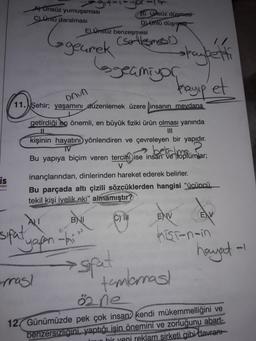 A) Ünsüz yumuşaması
B) Ünsüz düşmesi
C) Ünlü daralması
D) Ünlü düşmesi
E) Ünsüz benzeşmesi
(sertleşmesi)
kaybetti
kayıp et
onun
11. Şehir; yaşamını düzenlemek üzere insanın meydana
getirdiği en önemli, en büyük fiziki ürün olması yanında
II III
kişinin hayatını yönlendiren ve çevreleyen bir yapıdır.
IV
Bu yapıya biçim veren tercihi ise insan ve toplumlar;
V
inançlarından, dinlerinden hareket ederek belirler.
Bu parçada altı çizili sözcüklerden hangisi "üçüncü
tekil kişi iyelik eki" almamıştır?
A) I B) II C) III D) IV E) V
sıfat
hayat-ı
sıfat
tamlaması
özne
12. Günümüzde pek çok insan kendi mükemmelliğini ve
benzersizliğini, yaptığı işin önemini ve zorluğunu abart-
bir yeni reklam şirketi gibi davranı-